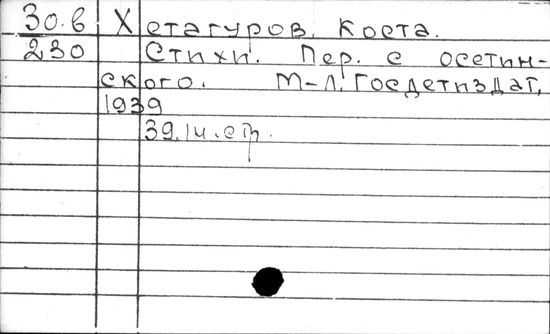 30.6 Хетагуров, Коста.
230 Стихи. Пер. с осетин-
ского. М-Л. Госдетиздат,
1939
39.1н.стр.